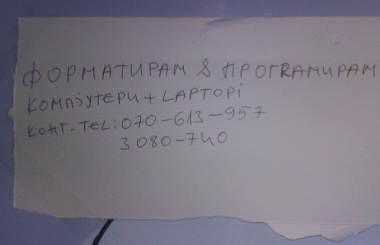 ФОРМАТИРАМ & ПРОГRAМИРАМ
КОМПЈУТЕРИ + LAPTOPI
КОНТ. TEL: 070-613-957
3080-740